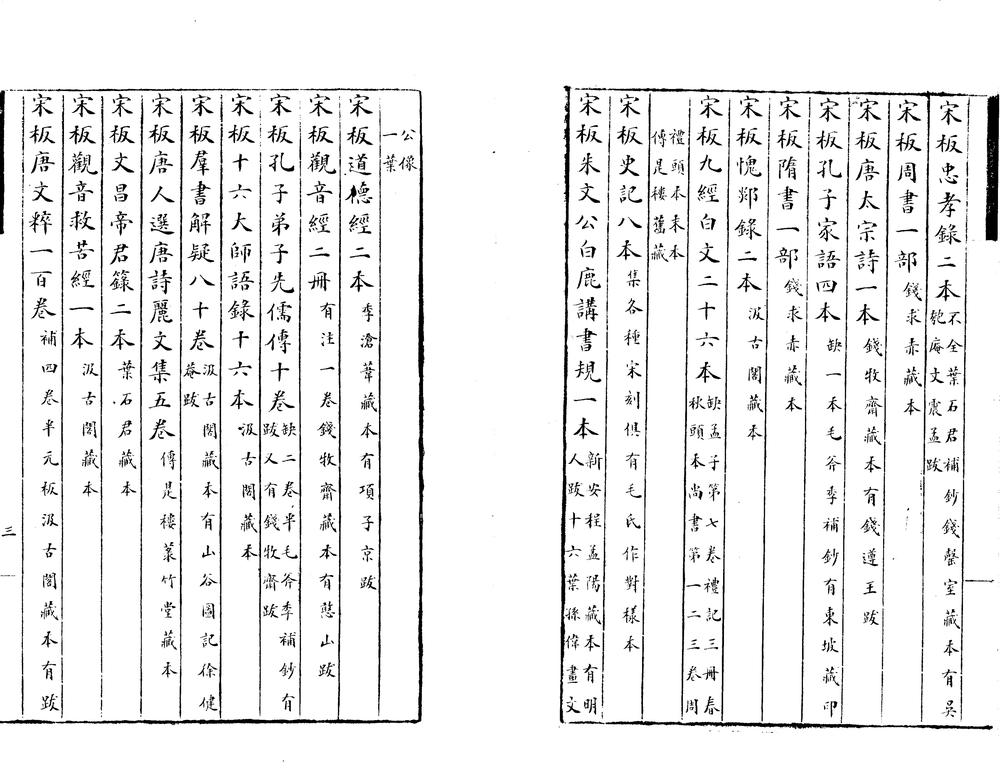 宋板忠孝錄二本不全葉石君補鈔錢罄室藏本有吳匏庵文震孟跋
宋板周書一部錢求赤藏本
宋板唐太宗詩一本錢牧齋藏本有錢遵王跋
宋板孔子家語四本缺一本毛斧季補鈔有東坡藏印
宋板隋書一部錢求赤藏本
宋板愧郯錄二本汲古閣藏本
宋板九經白文二十六本缺孟子第七卷禮記三冊春秋頭本尚書第一二三卷周
禮頭本末本傳是樓舊藏
宋板史記八本集各種宋刻俱有毛氏作對樣本
宋板朱文公白鹿講書規一本新安程孟陽藏本有明人跋十六葉孫偉畫文
公像一葉
宋板道德經二本季滄葦藏本有項子京跋
宋板觀音經二冊有注一卷錢牧齋藏本有憨山跋
宋板孔子弟子先儒傳十卷缺二卷半毛斧季補鈔有跋又有錢牧齋跋
宋板十六大師語錄十六本汲古閣藏本
宋板羣書解疑八十卷汲古閣藏本有山谷圖記徐健菴跋
宋板唐人選唐詩麗文集五卷傳是樓菉竹堂藏本
宋板文昌帝君籙二本葉石君藏本
宋板觀音救苦經一本汲古閣藏本
宋板唐文粹一百卷補四卷半元板汲古閣藏本有跋
三